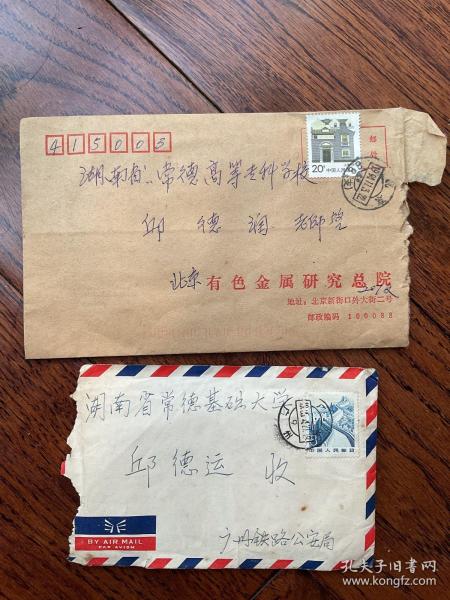 415003
湖南省常德高等专科学校
邱德润老师
20分 中国人民邮政
北京有色金属研究总院
地址:北京新街口外大街二号
邮政编码 100088
湖南省常德基础大学
邱德运 收
中国人民邮政
广州铁路公安局
BY AIR MAIL
PAR AVION
孔夫子旧书网
www.kongfz.com